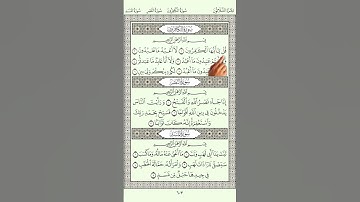 الجزء الثلاثون سورة الكافرون سورة النصر سورة المسد
سورة الكافرون
بِسْمِ اللَّهِ الرَّحْمَٰنِ الرَّحِيمِ
قُلْ يَا أَيُّهَا الْكَافِرُونَ ١ لَا أَعْبُدُ مَا تَعْبُدُونَ ٢
عَابِدُونَ مَا أَعْبُدُ ٣ وَلَا أَنَا عَابِدٌ مَا عَبَدْتُمْ ٤
عَابِدُونَ مَا أَعْبُدُ ٥ لَكُمْ دِينُكُمْ وَلِيَ دِينِ ٦
سورة النصر
بِسْمِ اللَّهِ الرَّحْمَٰنِ الرَّحِيمِ
إِذَا جَاءَ نَصْرُ اللَّهِ وَالْفَتْحُ ١ وَرَأَيْتَ النَّاسَ
يَدْخُلُونَ فِي دِينِ اللَّهِ أَفْوَاجًا ٢ فَسَبِّحْ بِحَمْدِ رَبِّكَ
وَاسْتَغْفِرْهُ إِنَّهُ كَانَ تَوَّابًا ٣
سورة المسد
بِسْمِ اللَّهِ الرَّحْمَٰنِ الرَّحِيمِ
تَبَّتْ يَدَا أَبِي لَهَبٍ وَتَبَّ ١ مَا أَغْنَىٰ عَنْهُ مَالُهُ وَمَا كَسَبَ ٢
سَيَصْلَىٰ نَارًا ذَاتَ لَهَبٍ ٣ وَامْرَأَتُهُ حَمَّالَةَ الْحَطَبِ ٤
فِي جِيدِهَا حَبْلٌ مِنْ مَسَدٍ ٥
٦٠٣